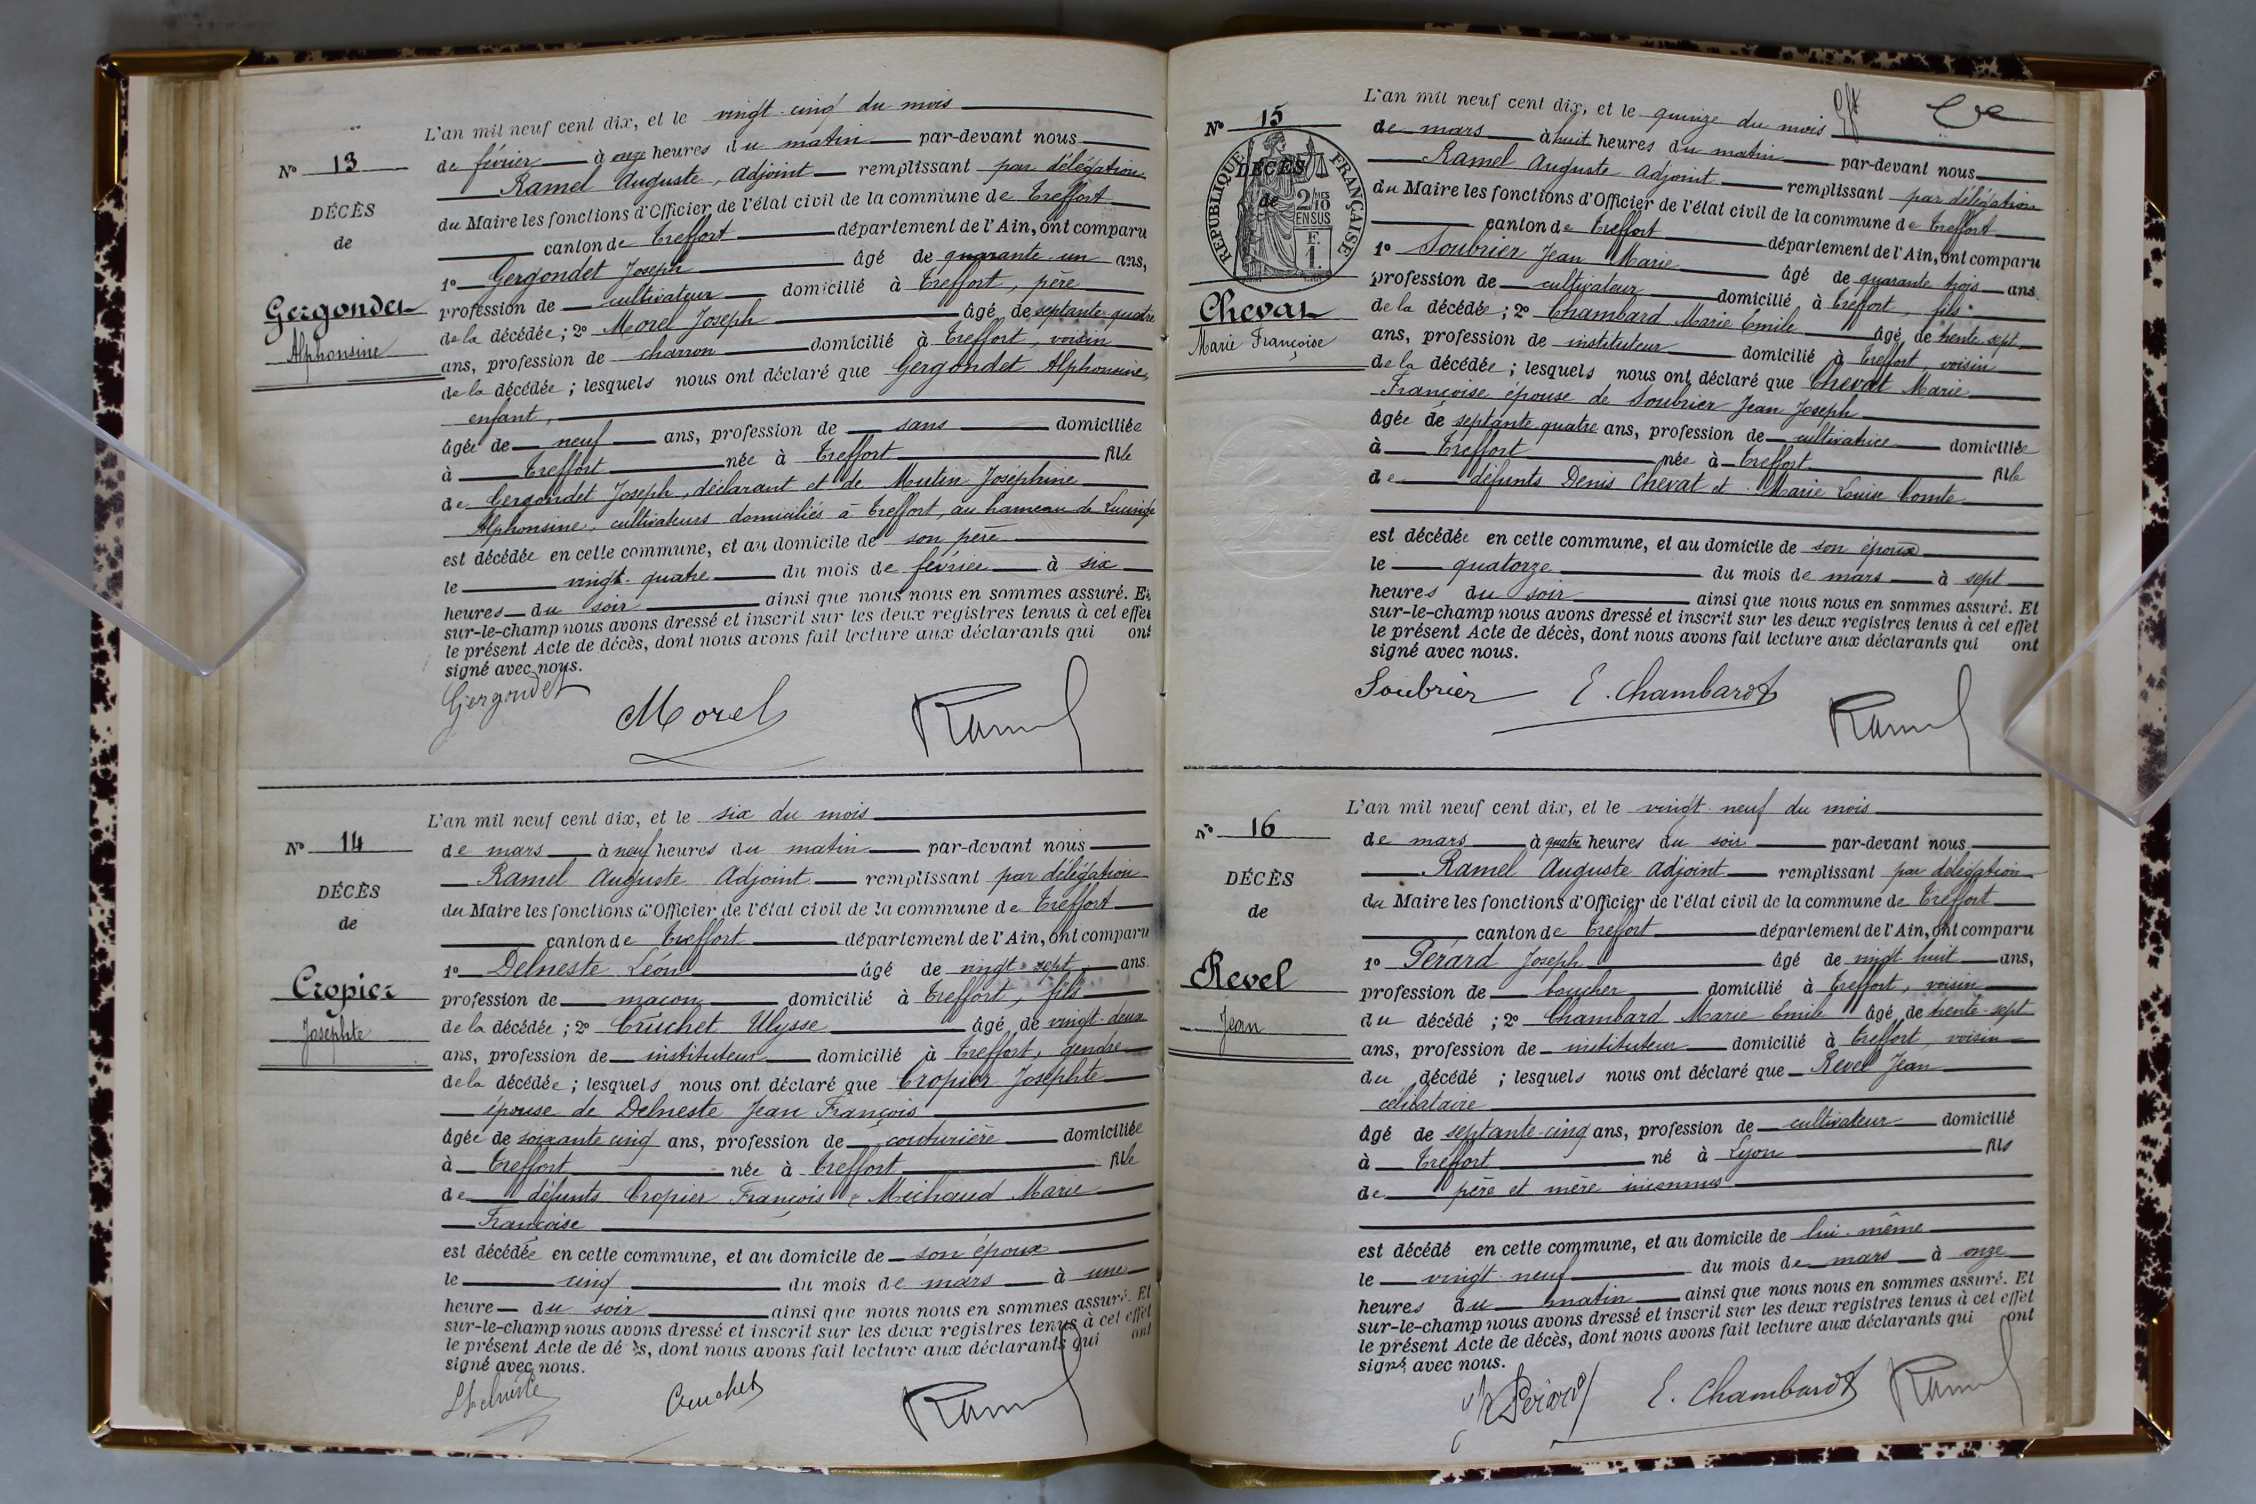 L'an mil neuf cent dix, et le vingt-cinq du mois
Nº 13
de février à onze heures du matin par-devant nous
Ramel Auguste, Adjoint remplissant par délégation
DÉCÈS
du Maire les fonctions d'Officier de l'état civil de la commune de Treffort
de
canton de Treffort département de l'Ain, ont comparu
1º Gergondet Joseph âgé de quarante-un ans,
Gergondet
profession de cultivateur domicilié à Treffort, père
Alphonsine
de la décédée; 2º Morel Joseph âgé de septante-quatre
ans, profession de charron domicilié à Treffort, voisin
de la décédée; lesquels nous ont déclaré que Gergondet Alphonsine,
enfant,
âgée de neuf ans, profession de sans domiciliée
à Treffort née à Treffort fille
de Gergondet Joseph, déclarant et de Mutin Joséphine
Alphonsine, cultivateurs domiciliés à Treffort, au hameau de
est décédée en cette commune, et au domicile de son père
le vingt-quatre du mois de février à six
heures du soir ainsi que nous nous en sommes assuré. Et
sur-le-champ nous avons dressé et inscrit sur les deux registres tenus à cet effet
le présent Acte de décès, dont nous avons fait lecture aux déclarants qui ont
signé avec nous.
Gergondet Morel Ramel
L'an mil neuf cent dix, et le six du mois
Nº 14
de mars à neuf heures du matin par-devant nous
Ramel Auguste Adjoint remplissant par délégation
DÉCÈS
du Maire les fonctions d'Officier de l'état civil de la commune de Treffort
de
canton de Treffort département de l'Ain, ont comparu
1º Delneste Léon âgé de vingt-sept ans.
Cropier
profession de maçon domicilié à Treffort, fils
Josephte
de la décédée; 2º Cruchet Ulysse âgé de vingt-deux
ans, profession de instituteur domicilié à Treffort, gendre
de la décédée; lesquels nous ont déclaré que Cropier Josephte
épouse de Delneste Jean François
âgée de soixante cinq ans, profession de couturière domiciliée
à Treffort née à Treffort fille
de défunts Cropier François & Michaud Marie
Françoise
est décédée en cette commune, et au domicile de son époux
le cinq du mois de mars à une
heure du soir ainsi que nous nous en sommes assuré. Et
sur-le-champ nous avons dressé et inscrit sur les deux registres tenus à cet effet
le présent Acte de décès, dont nous avons fait lecture aux déclarants qui ont
signé avec nous.
Cruchet Ramel
L'an mil neuf cent dix, et le quinze du mois
Nº 15
de mars à huit heures du matin par-devant nous
Ramel Auguste Adjoint remplissant par délégation
DÉCÈS
de
RÉPUBLIQUE FRANÇAISE
2/10 EN SUS
F. 1.
du Maire les fonctions d'Officier de l'état civil de la commune de Treffort
canton de Treffort département de l'Ain, ont comparu
1º Soubrier Jean Marie âgé de quarante trois ans.
Chevat
profession de cultivateur domicilié à Treffort, fils
Marie Françoise
de la décédée; 2º Chambard Marie Emile âgé de trente-sept
ans, profession de instituteur domicilié à Treffort, voisin
de la décédée; lesquels nous ont déclaré que Chevat Marie
Françoise épouse de Soubrier Jean Joseph
âgée de septante quatre ans, profession de cultivatrice domiciliée
à Treffort née à Treffort fille
de défunts Denis Chevat et Marie Louise Comte
est décédée en cette commune, et au domicile de son époux
le quatorze du mois de mars à sept
heures du soir ainsi que nous nous en sommes assuré. Et
sur-le-champ nous avons dressé et inscrit sur les deux registres tenus à cet effet
le présent Acte de décès, dont nous avons fait lecture aux déclarants qui ont
signé avec nous.
Soubrier E. Chambard Ramel
L'an mil neuf cent dix, et le vingt-neuf du mois
Nº 16
de mars à quatre heures du soir par-devant nous
Ramel Auguste Adjoint remplissant par délégation
DÉCÈS
du Maire les fonctions d'Officier de l'état civil de la commune de Treffort
de
canton de Treffort département de l'Ain, ont comparu
1º Pérard Joseph âgé de vingt huit ans,
Revel
profession de boucher domicilié à Treffort, voisin
Jean
du décédé; 2º Chambard Marie Emile âgé de trente-sept
ans, profession de instituteur domicilié à Treffort, voisin
du décédé; lesquels nous ont déclaré que Revel Jean
célibataire
âgé de septante-cinq ans, profession de cultivateur domicilié
à Treffort né à Lyon fils
de père et mère inconnus
est décédé en cette commune, et au domicile de lui-même
le vingt-neuf du mois de mars à onze
heures du matin ainsi que nous nous en sommes assuré. Et
sur-le-champ nous avons dressé et inscrit sur les deux registres tenus à cet effet
le présent Acte de décès, dont nous avons fait lecture aux déclarants qui ont
signé avec nous.
Pérard E. Chambard Ramel